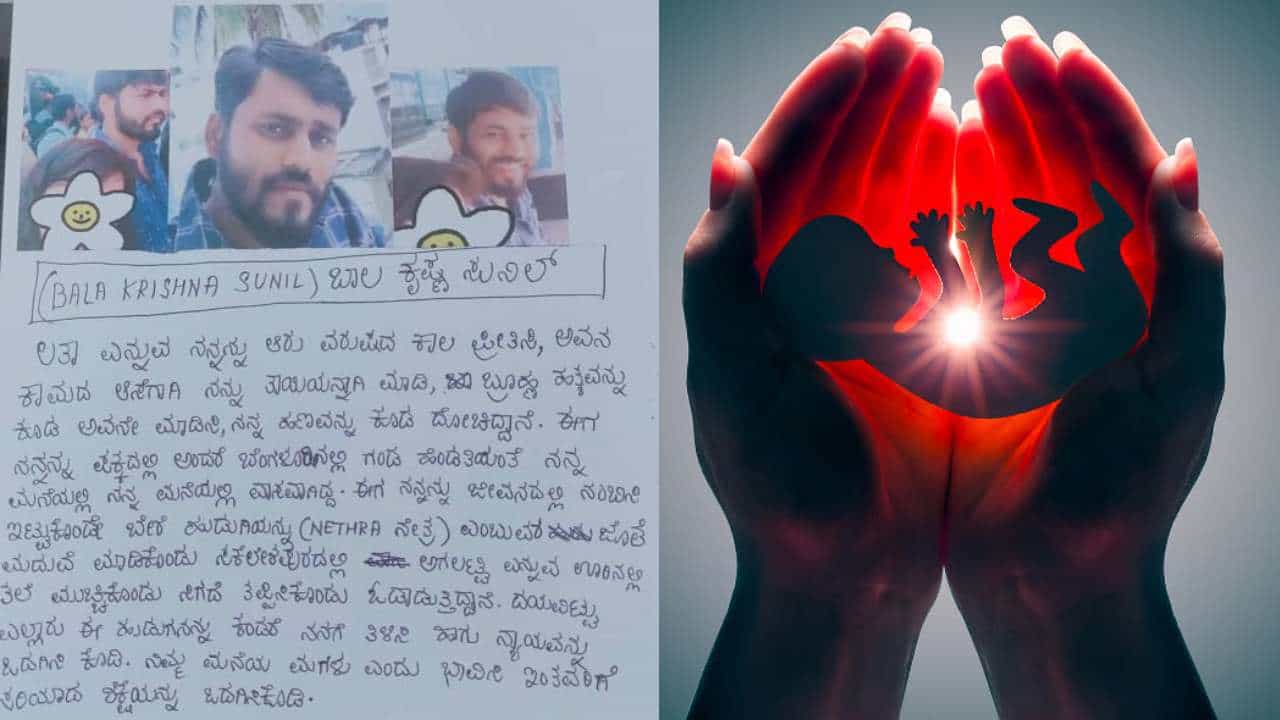 (BALA KRISHNA SUNIL) ಬಾಲ ಕೃಷ್ಣ ಸುನಿಲ್
ಲತಾ ಎನ್ನುವ ನನ್ನನ್ನು ಆರು ವರುಷದ ಕಾಲ ಪ್ರೀತಿಸಿ, ಅವನ
ಕಾಮದ ಆಸೆಗಾಗಿ ನನ್ನು ತಾಯಿಯನ್ನಾಗಿ ಮಾಡಿ, ಬ್ರೂಣ ಹತ್ಯವನ್ನು
ಕೂಡ ಅವನೇ ಮಾಡಿಸಿ, ನನ್ನ ಹಣವನ್ನು ಕೂಡ ದೋಚಿದ್ದಾನೆ. ಈಗ
ನನ್ನನ್ನು ಪಕ್ಕದಲ್ಲಿ ಅಂದರೆ ಬೆಂಗಳೂರಿನಲ್ಲಿ ಗಂಡ ಹೆಂಡತಿಯಂತೆ ನನ್ನ
ಮನೆಯಲ್ಲಿ ನನ್ನ ಮನೆಯಲ್ಲಿ ವಾಸವಾಗಿದ್ದ. ಈಗ ನನ್ನನ್ನು ಜೀವನದಲ್ಲಿ ನಂಬಿಸಿ
ಇಟ್ಟುಕೊಂಡೇ ಬೇರೆ ಹುಡುಗಿಯನ್ನು (NETHRA ನೇತ್ರ) ಎಂಬುವರ ಜೊತೆ
ಮದುವೆ ಮಾಡಿಕೊಂಡು ಸಕಲೇಶಪುರದಲ್ಲಿ ಎನ್ನುವ ಊರಿನಲ್ಲಿ
ತಲೆ ಮುಚ್ಚಿಕೊಂಡು ಸಿಗದೆ ತಪ್ಪಿಸಿಕೊಂಡು ಓಡಾಡುತ್ತಿದ್ದಾನೆ. ದಯವಿಟ್ಟು
ಎಲ್ಲಾರು ಈ ಹುಡುಗನನ್ನು ಕಂಡರೆ ನನಗೆ ತಿಳಿಸಿ ಹಾಗು ನ್ಯಾಯವನ್ನು
ಒದಗಿಸಿ ಕೊಡಿ. ನಿಮ್ಮ ಮನೆಯ ಮಗಳು ಎಂದು ಭಾವಿಸಿ ಇಂತವರಿಗೆ
ಸರಿಯಾದ ಶಿಕ್ಷೆಯನ್ನು ಒದಗಿಸಿಕೊಡಿ.